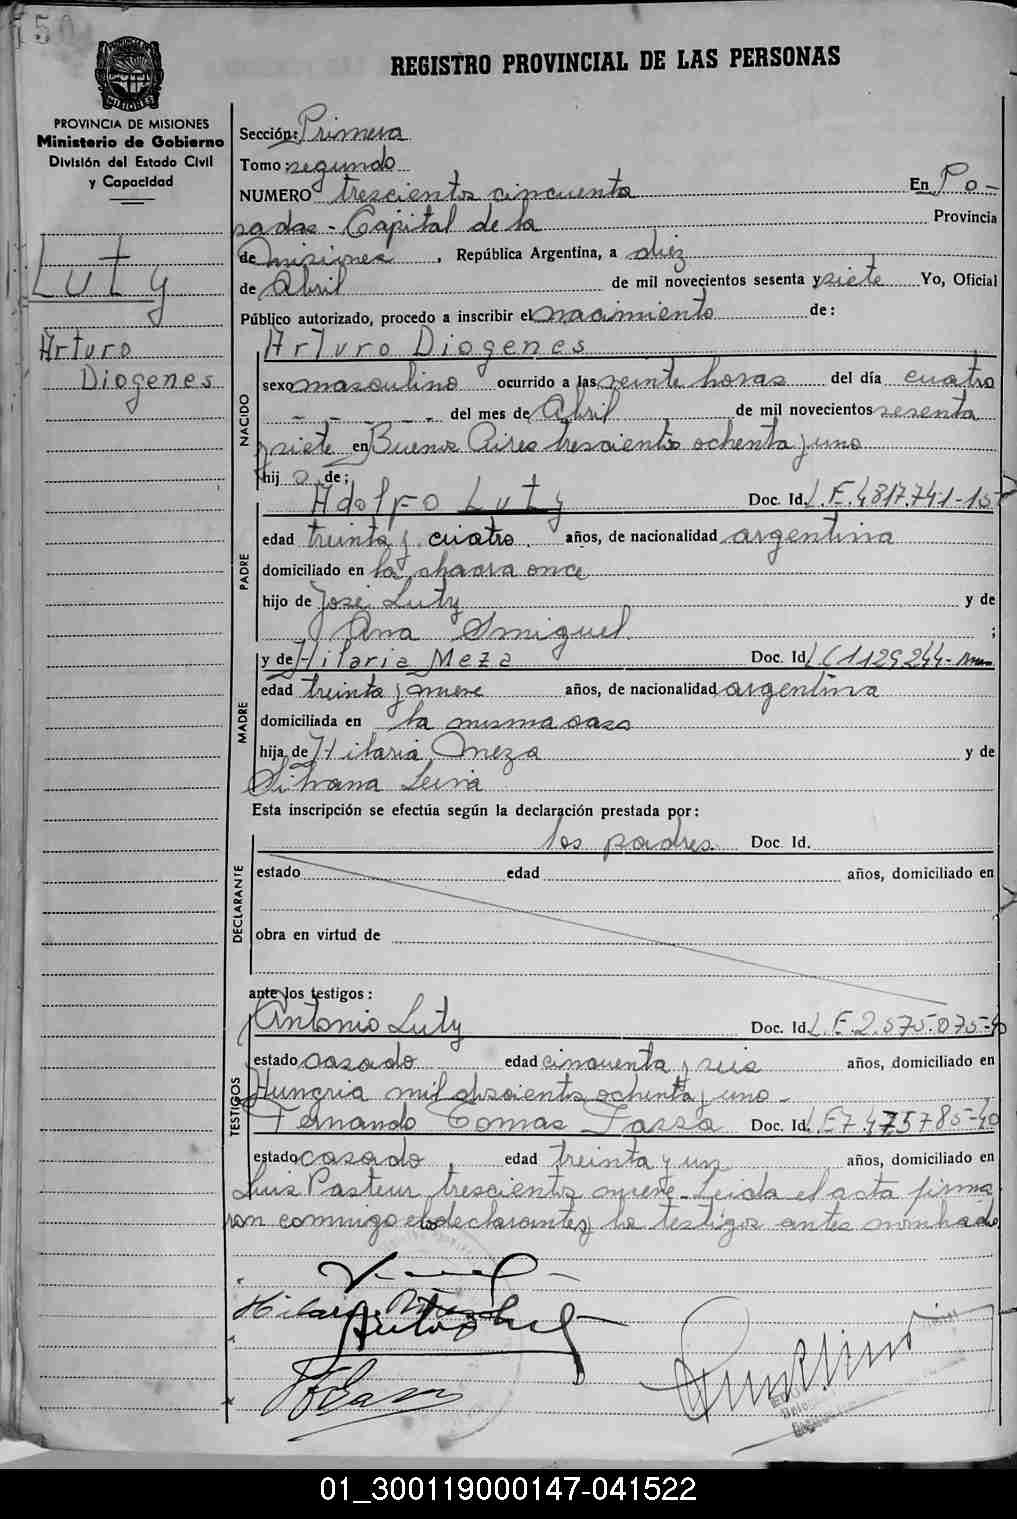 350
REGISTRO PROVINCIAL DE LAS PERSONAS
PROVINCIA DE MISIONES
Ministerio de Gobierno
División del Estado Civil
y Capacidad
Luty
Arturo
Diogenes
Sección: Primera
Tomo: segundo
NUMERO trescientos cincuenta En Po-
sadas - Capital de la Provincia
de Misiones, República Argentina, a diez
de Abril de mil novecientos sesenta y siete Yo, Oficial
Público autorizado, procedo a inscribir el nacimiento de:
Arturo Diogenes
NACIDO
sexo masculino ocurrido a las veinte horas del día cuatro
- - - - del mes de Abril de mil novecientos sesenta
y siete en Buenos Aires trescientos ochenta y uno
hijo de;
Adolfo Luty Doc. Id. L.E. 4817.741-15
PADRE
edad treinta y cuatro años, de nacionalidad argentina
domiciliado en la chacra once
hijo de José Luty y de
Ana Smiguel ;
y de Hilaria Meza Doc. Id LC 1129244
MADRE
edad treinta y nueve años, de nacionalidad argentina
domiciliada en la misma casa
hija de Hilaria Meza y de
Silvana Leiva
Esta inscripción se efectúa según la declaración prestada por:
los padres Doc. Id.
DECLARANTE
estado edad años, domiciliado en
obra en virtud de
ante los testigos:
Antonio Luty Doc. Id. L.E. 2.575.075-40
TESTIGOS
estado casado edad cincuenta y seis años, domiciliado en
Hungria mil doscientos ochenta y uno -
Fernando Tomas Doc. Id. LE 7.475785-40
estado casado edad treinta y un años, domiciliado en
Luis Pasteur trescientos nueve - Leida el acta firma
ron conmigo los declarantes y los testigos antes nombrados
Hilaria Meza
01_300119000147-041522